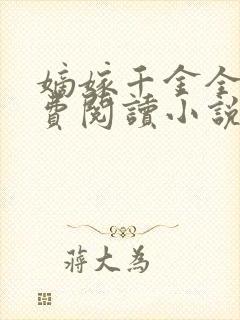 嫡嫁千金全
費閱讀小說
蔣大為